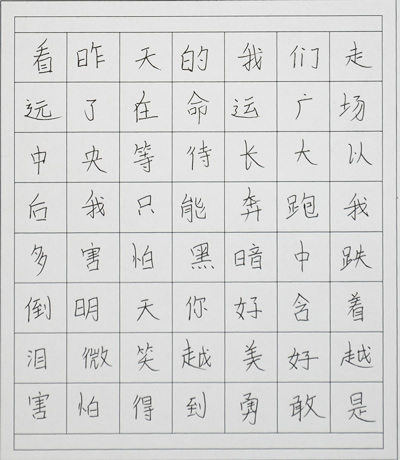 看昨天的我们走
远了在命运广场
中央等待长大以
后我只能奔跑我
多害怕黑暗中跌
倒明天你好含着
泪微笑越美好越
害怕得到勇敢是